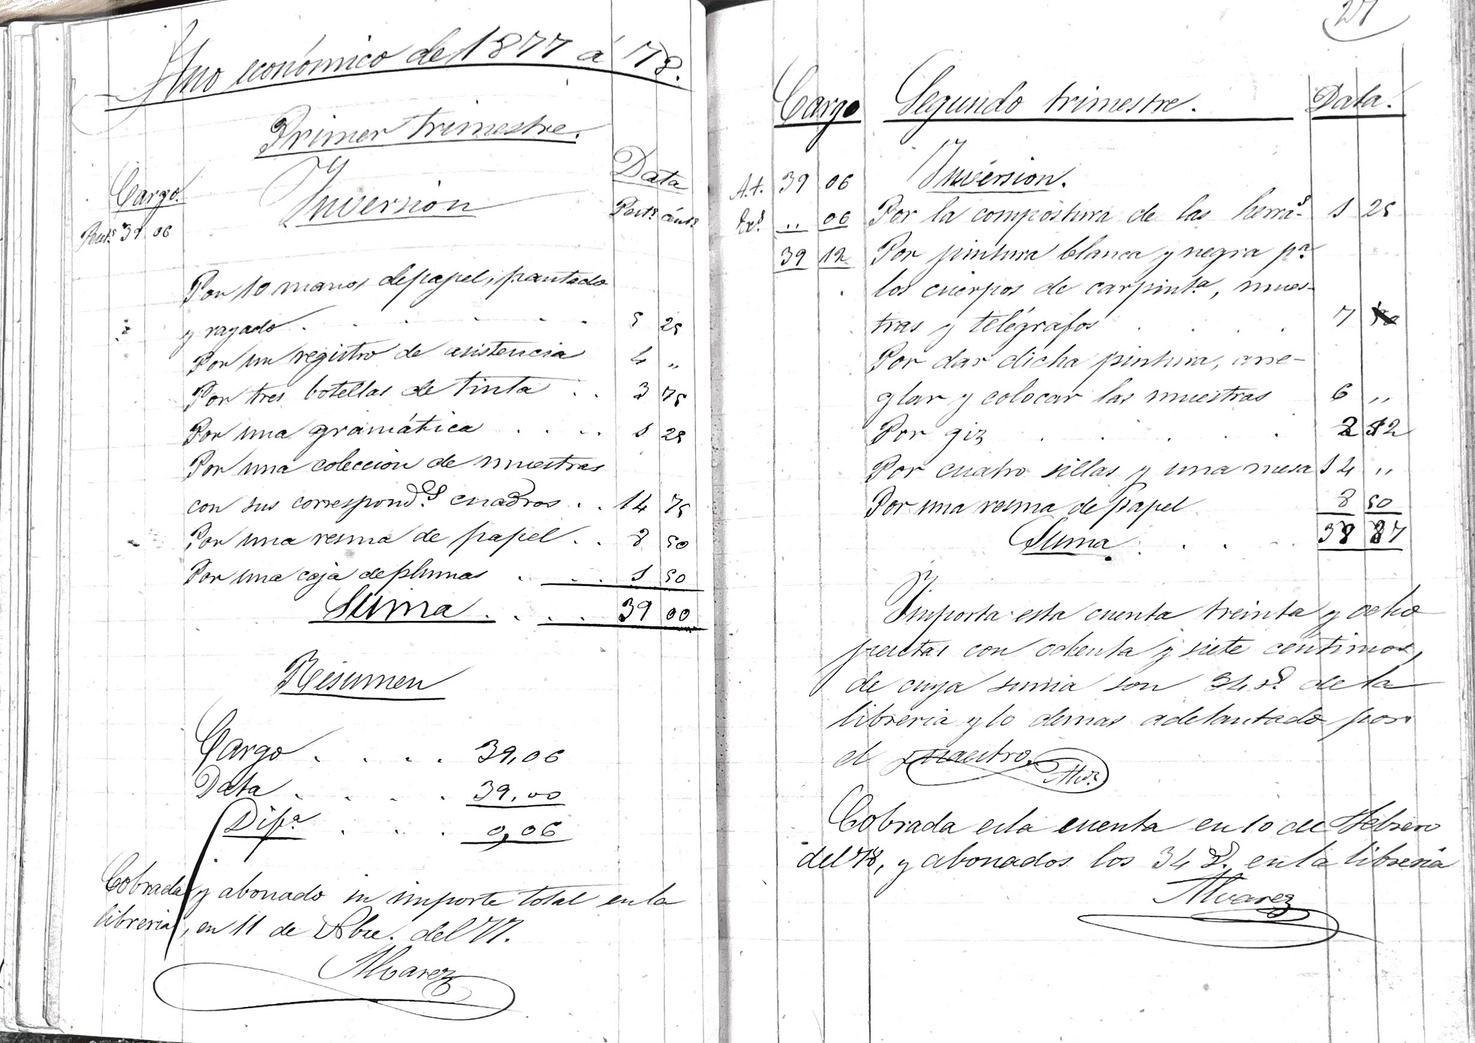 Año económico de 1877 á 78.
Primer trimestre.
Cargo. Inversion Data
Pest.s 39 06 Pest.s cént.s
Por 10 manos de papel, pautado
y rayado . . . . . 5 25
Por un registro de asistencia 4 „
Por tres botellas de tinta . . 3 75
Por una gramática . . . . 1 25
Por una coleccion de muestras
con sus correspond.es cuadros . . 14 75
Por una resma de papel . . 8 50
Por una caja de plumas . . . 1 50
Suma . . . . 39 00
Resumen
Cargo . . . . 39,06
Data . . . . 39,00
Dif.a . . . . 0,06
Cobrada y abonado su importe total en la
libreria, en 11 de Obre. del 77.
Alvarez
27
Cargo Segundo trimestre. Data.
A.t. 39 06 Inversion.
„ 06 Por la compostura de las herra.s 1 25
39 12 Por pintura blanca y negra p.a
los cuerpos de carpint.a, mues-
tras y telégrafos . . . . 7
Por dar dicha pintura, arre-
glar y colocar las muestras 6 „
Por giz . . . . 2 12
Por cuatro sillas y una mesa 14 „
Por una resma de papel 8 50
Suma . . . . 38 87
Importa esta cuenta treinta y ocho
pesetas con ochenta y siete centimos,
de cuya suma son 34 r.s de la
libreria y lo demas adelantado por
el maestro.
Cobrada esta cuenta en 10 de Febrero
del 78, y abonados los 34 r.s en la libreria
Alvarez